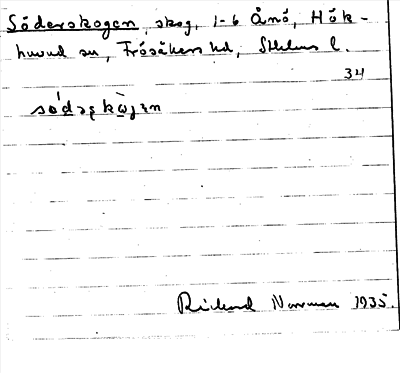 Söderskogen, skog, 1-6 Ånö, Hök-
huvud sn, Frösåkers hd, Sthlms l.
34
Rickard Norrman 1935.